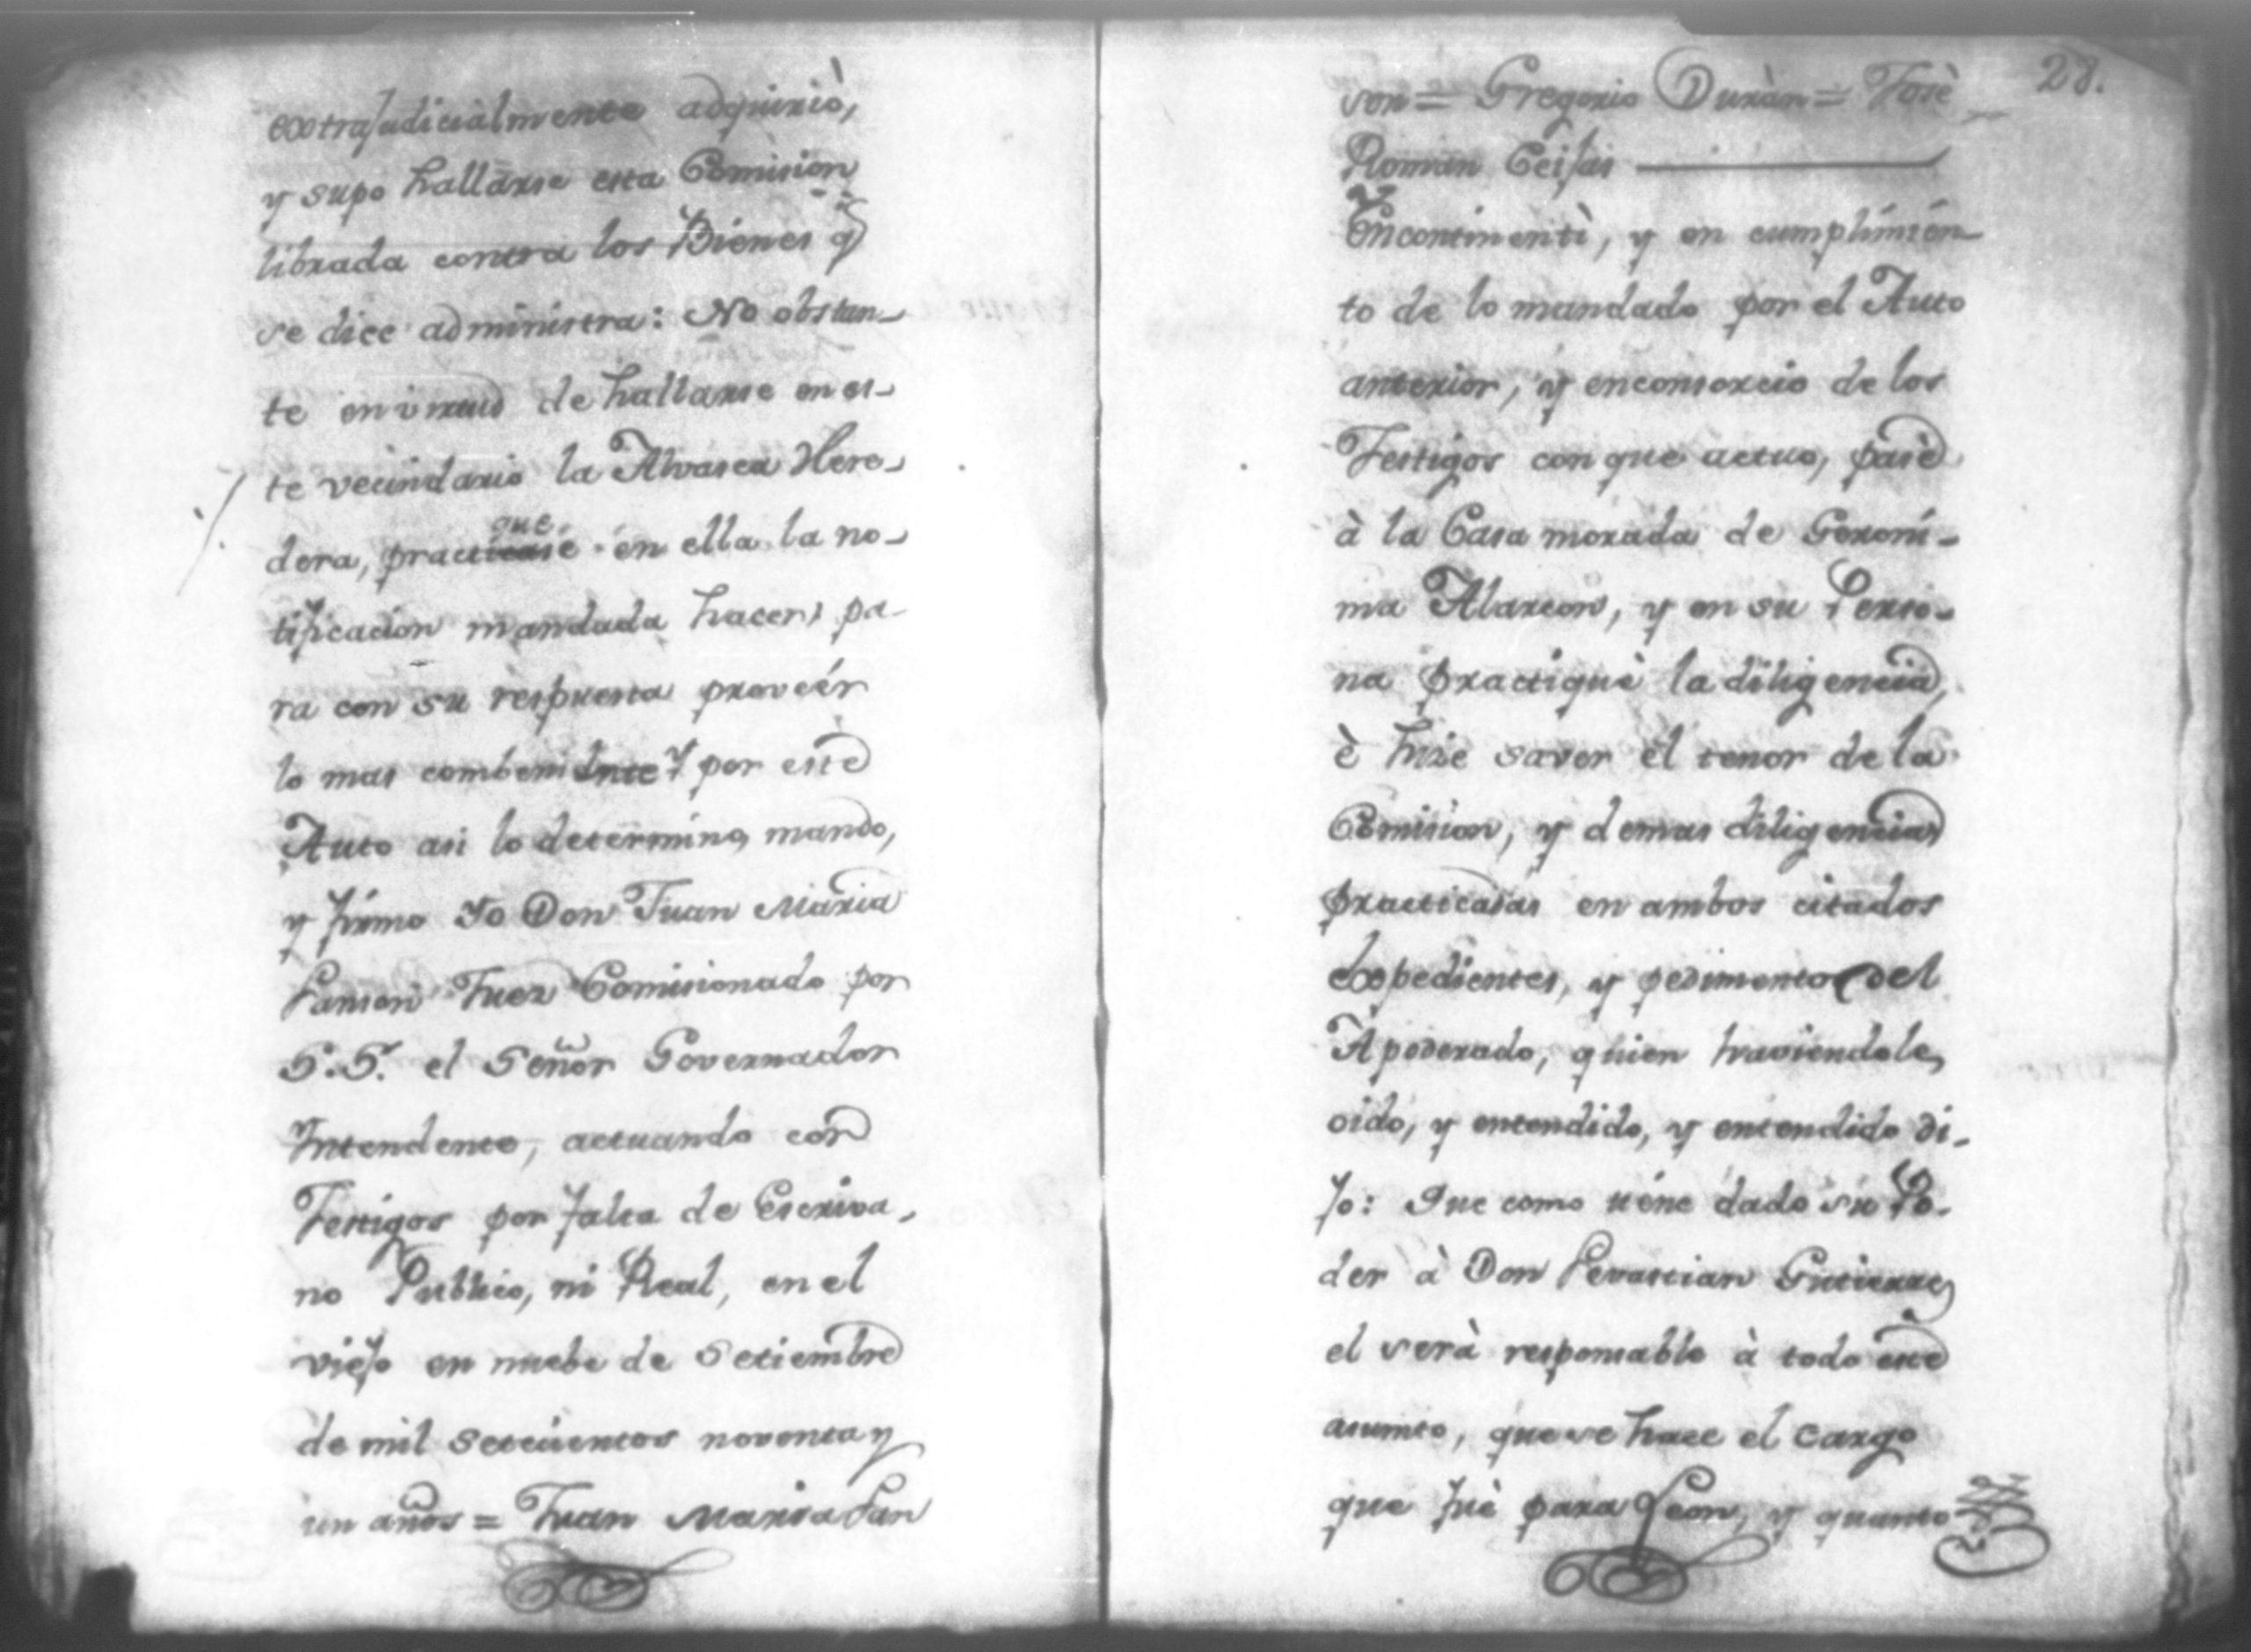 extrajudicialmente adquiriò,
y supo hallarse esta Comision
librada contra los Bienes q̃
se dice administra: No obstan-
te en virtud de hallarse en es-
te vecindario la Alvasea Here-
dera, practicase que en ella la no-
tificacion mandada hacer, pa-
ra con su respuesta proveér
lo mas combeniente Y por este
Auto asi lo determino, mando,
y firmo Yo Don Juan Maria
Sanson Juez Comisionado por
S.S. el Señor Governador
Intendente, actuando con
Testigos por falta de Escriva-
no Publico, ni Real, en el
viejo en nuebe de Setiembre
de mil setecientos noventa y
un años = Juan Maria San
28.
son = Gregorio Duràn = Josè
Roman Ceijas
Encontinenti, y en cumplimien-
to de lo mandado por el Auto
anterior, y en consorcio de los
Testigos con que actuo, pasè
à la Casa morada de Geroni-
ma Alarcon, y en su Perso-
na practiquè la diligencia,
è hize saver el tenor de la
Comision, y demas diligencias
practicadas en ambos citados
Expedientes, y pedimento del
Apoderado, quien haviendole
oido, y entendido, y entendido di-
jo: Que como tiene dado su Po-
der à Don Sevastian Gutierrez
el serà responsable à todo este
asumto, que se hace el cargo
que fuè para Leon, y quanto